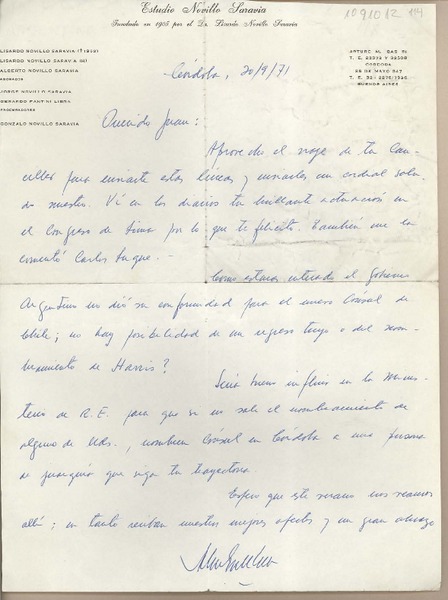 Estudio Novillo Saravia
Fundado en 1905 por el Dr. Lisardo Novillo Saravia
109101 2 114
LISARDO NOVILLO SARAVIA
LISARDO NOVILLO SARAVIA (H)
ALBERTO NOVILLO SARAVIA
ABOGADOS
JORGE NOVILLO SARAVIA
PROCURADORES
GONZALO NOVILLO SARAVIA
ARTURO M. BAS
T. E.
CORDOBA
25 DE MAYO
T. E. 32-
BUENOS AIRES
Córdoba, 20/9/71
Querido Juan:
Aprovecho el viaje de tu Can-
ciller para enviarte estas líneas y enviarles un cordial salu-
do nuestro. Ví en los diarios tu brillante actuación en
el Congreso de Lima por lo que te felicito. También me la
comentó Carlos Luque.
Como estarás enterado el Gobierno
Argentino no dió su conformidad para el nuevo Cónsul de
Chile; no hay posibilidad de un regreso tuyo o del nom-
bramiento de Harris?
Sería bueno influir en la Minis-
terio de R.E. para que si no sale el nombramiento de
alguno de Uds., nombren Cónsul en Córdoba a una persona
de jerarquía que siga tu trayectoria.
Espero que este verano nos veamos
allí; en tanto reciban nuestros mejores afectos y un gran abrazo